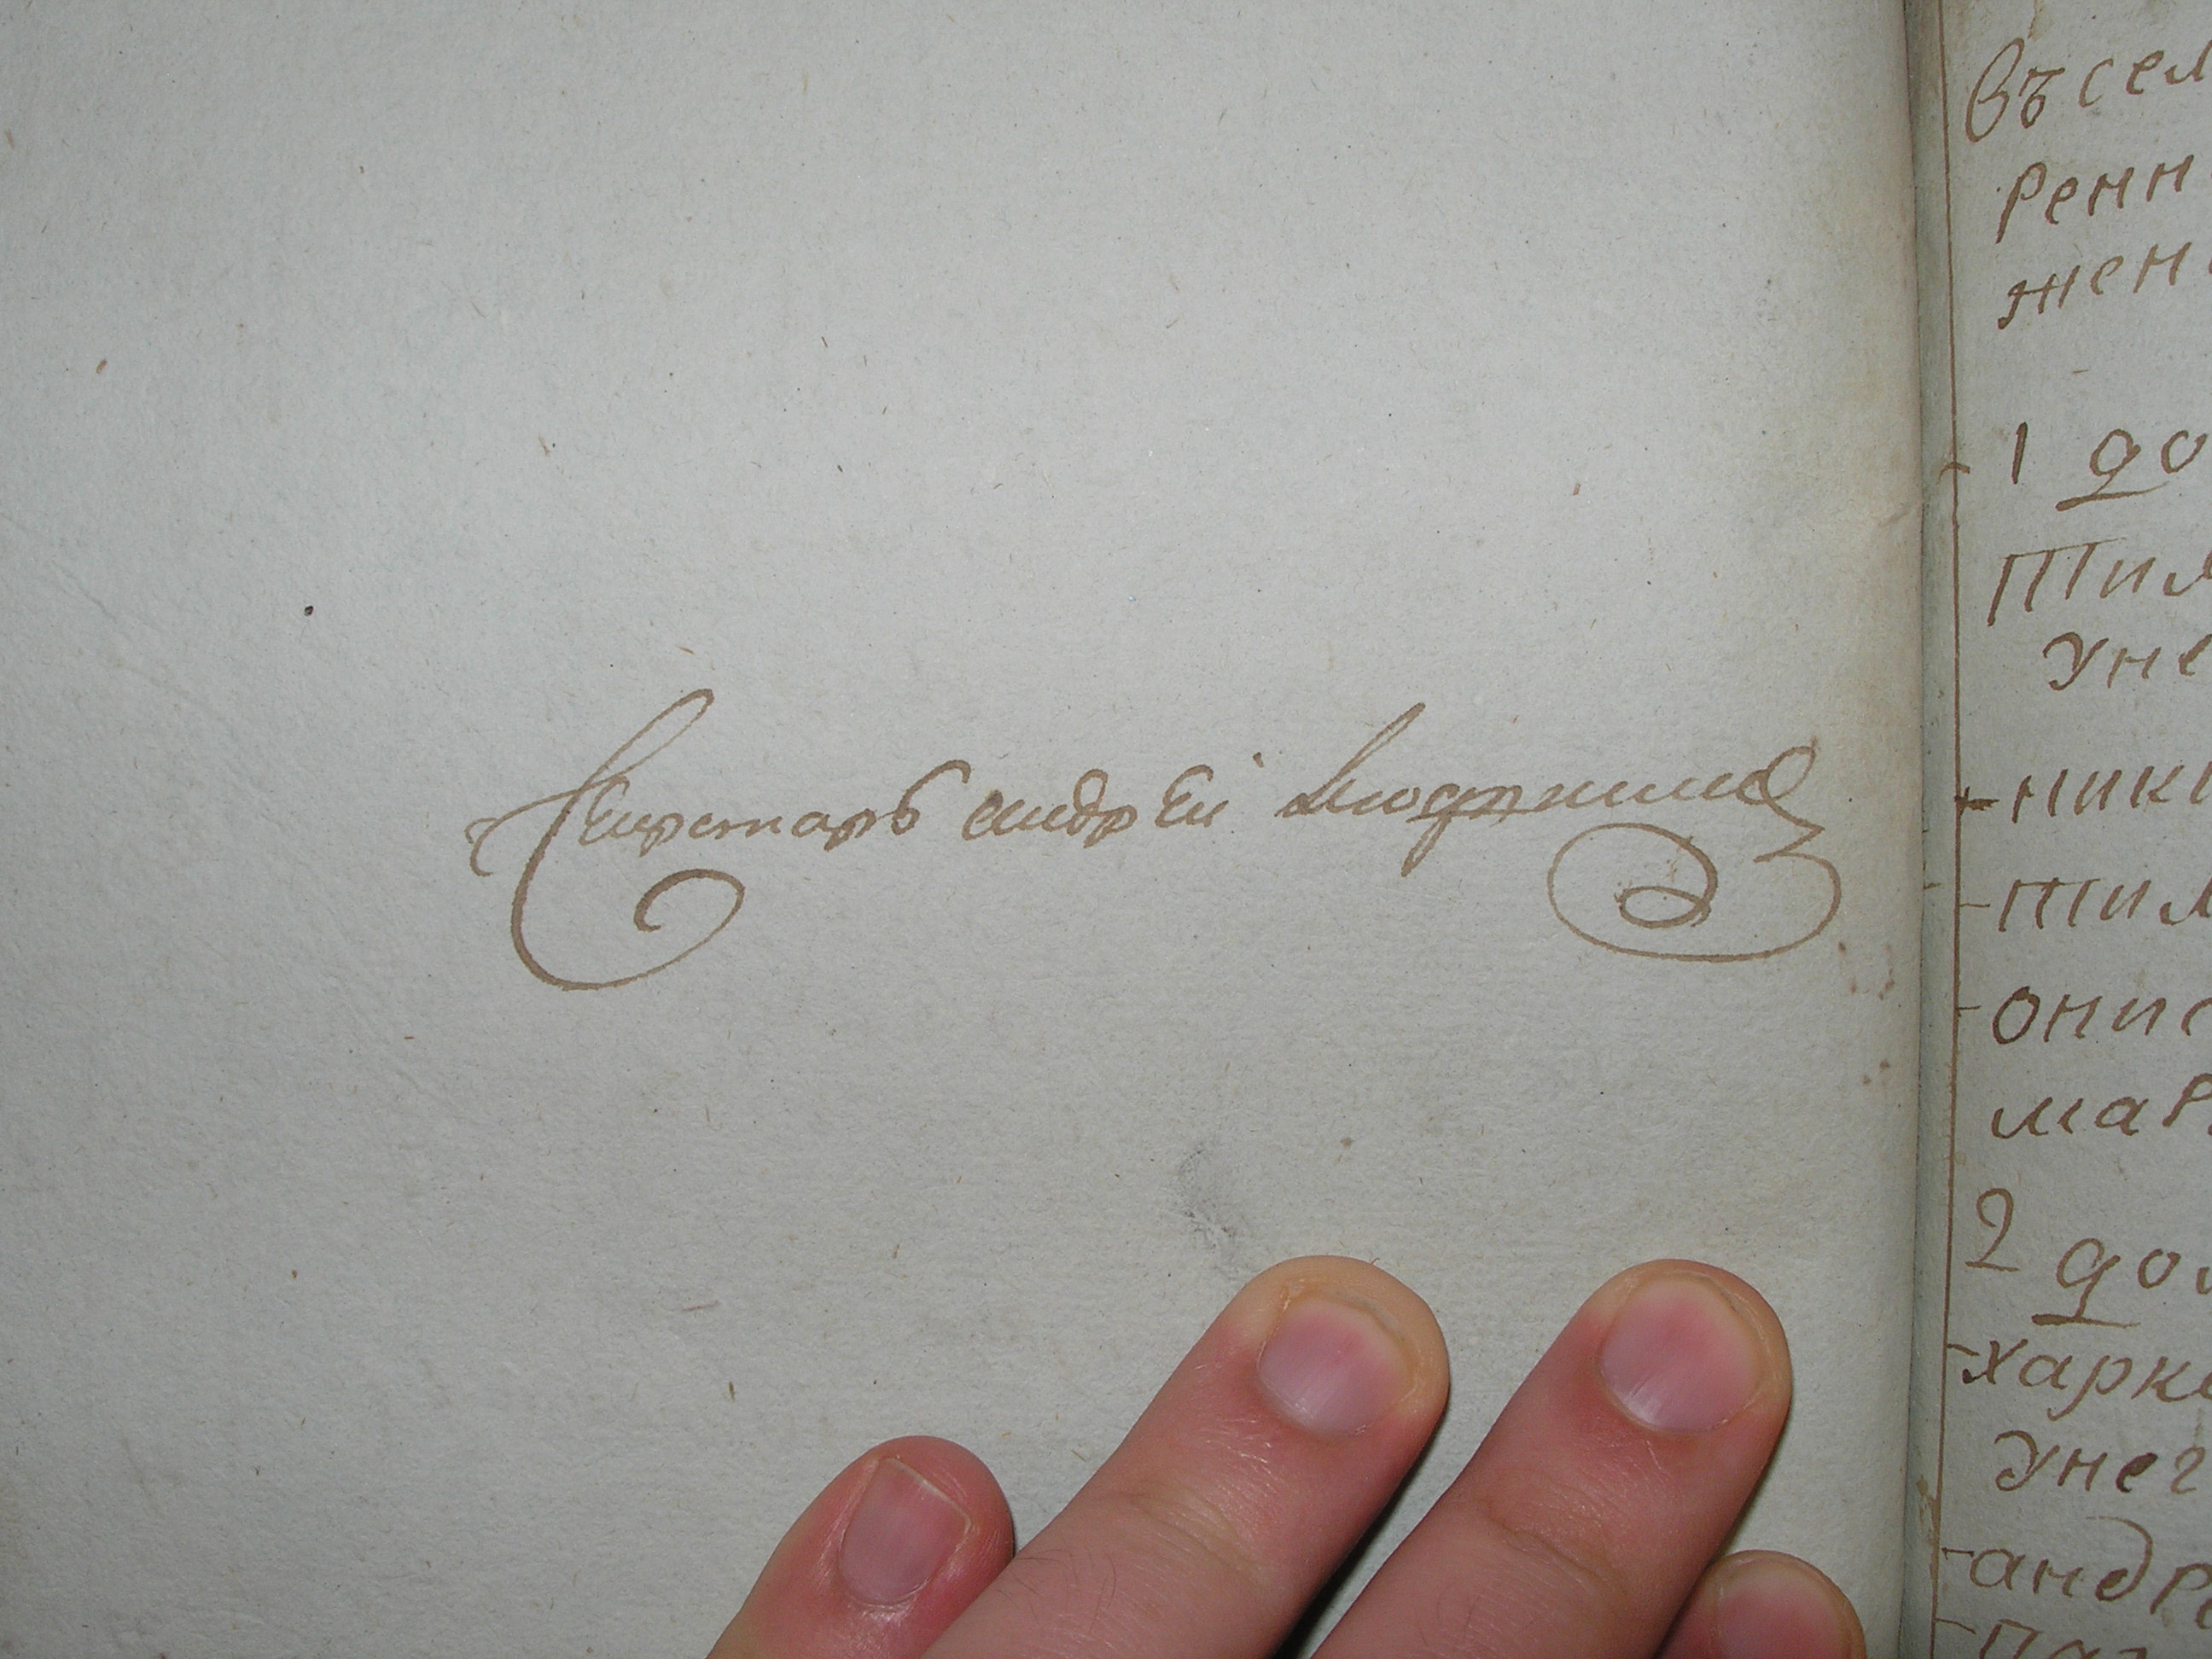 Секретарь андрей
въ сем
ренн
жен
1 до
тим
уне
ники
тим
онис
мар
2 дом
харк
унег
андре